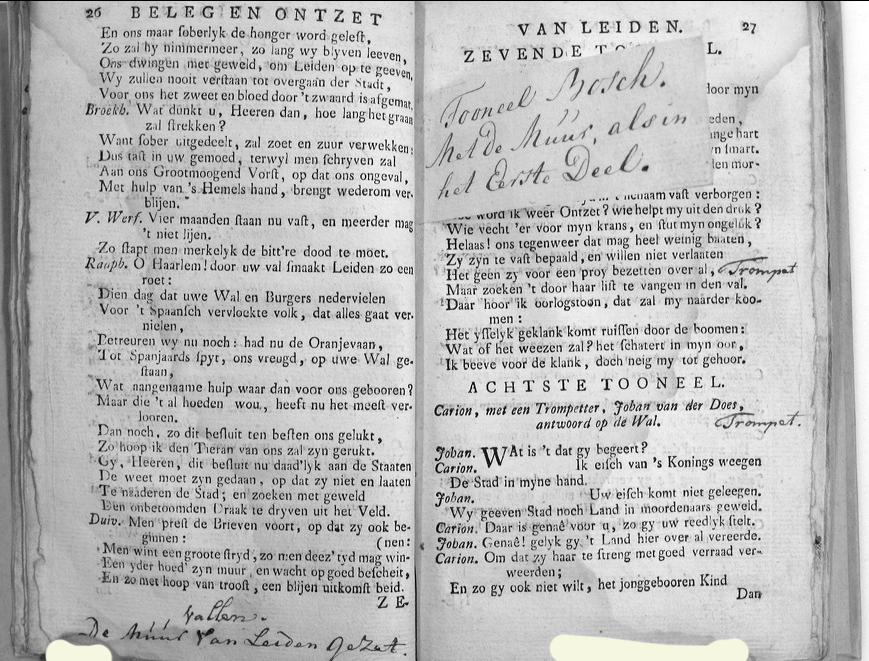 26 BELEG EN ONTZET
En ons maar soberlyk de honger word gelest,
Zo zal hy nimmermeer, zo lang wy blyven leeven,
Ons dwingen met geweld, om Leiden op te geeven,
Wy zullen nooit verstaan tot overgaan der Stadt,
Voor ons het zweet en bloed door 't zwaard is afgemat,
Broekh. Wat dunkt u, Heeren dan, hoe lang het graan
zal strekken?
Want sober uitgedeelt, zal zoet en zuur verwekken:
Dus tast in uw gemoed, terwyl men schryven zal
Aan ons Grootmoogend Vorst, op dat ons ongeval,
Met hulp van 's Hemels hand, brengt wederom ver-
blijen.
V. Werf. Vier maanden staan nu vast, en meerder mag
't niet lijen.
Zo stapt men merkelyk de bitt're dood te moet.
Rauph. O Haarlem! door uw val smaakt Leiden zo een
roet:
Dien dag dat uwe Wal en Burgers nedervielen
Voor 't Spaansch vervloekte volk, dat alles gaat ver-
nielen,
Betreuren wy nu noch: had nu de Oranjevaan,
Tot Spanjaards spyt, ons vreugd, op uwe Wal ge-
staan,
Wat aangenaame hulp waar dan voor ons gebooren?
Maar die 't al hoeden wou, heeft nu het meest ver-
looren.
Dan noch, zo dit besluit ten besten ons gelukt,
Zo hoop ik den Tieran van ons zal zyn gerukt.
Gy, Heeren, dit besluit nu daad'lyk aan de Staaten
De weet moet zyn gedaan, op dat zy niet en laaten
Te naaderen de Stad; en zoeken met geweld
Een onbetoomden Draak te dryven uit het Veld.
Duiv. Men prest de Brieven voort, op dat zy ook be-
ginnen: (nen:
Men wint een groote stryd, zo men deez' tyd mag win-
Een yder hoed' zyn muur, en wacht op goed bescheit,
En zo met hoop van troost, een blijen uitkomst beid.
Z E-
Vallen.
De Múúr Van Leiden Gezet.
VAN LEIDEN. 27
ZEVENDE TO L.
Tooneel Bosch.
Met de Múúr, als in
het Eerste Deel.
door myn
eden,
ange hart
yn smart.
len mor-
lichaam vast verborgen:
word ik weer Ontzet? wie helpt my uit den druk?
Wie vecht 'er voor myn krans, en stut myn ongeluk?
Helaas! ons tegenweer dat mag heel weinig baaten,
Zy zyn te vast bepaald, en willen niet verlaaten
Het geen zy voor een proy bezetten over al, Trompet
Maar zoeken 't door haar list te vangen in den val.
Daar hoor ik oorlogstoon, dat zal my naarder koo-
men:
Het ysselyk geklank komt ruissen door de boomen:
Wat of het weezen zal? het schatert in myn oor,
Ik beeve voor de klank, doch neig my tot gehoor.
ACHTSTE TOONEEL.
Carion, met een Trompetter, Johan van der Does,
antwoord op de Wal. Trompet.
Johan. WAt is 't dat gy begeert?
Carion. Ik eisch van 's Konings weegen
De Stad in myne hand.
Johan. Uw eisch komt niet geleegen.
Wy geeven Stad noch Land in moordenaars geweld.
Carion. Daar is genaê voor u, zo gy uw reedlyk stelt.
Johan. Genaê! gelyk gy, 't Land hier over al vereerde.
Carion. Om dat zy haar te streng met goed verraad ver-
weerden;
En zo gy ook niet wilt, het jonggebooren Kind
Dan